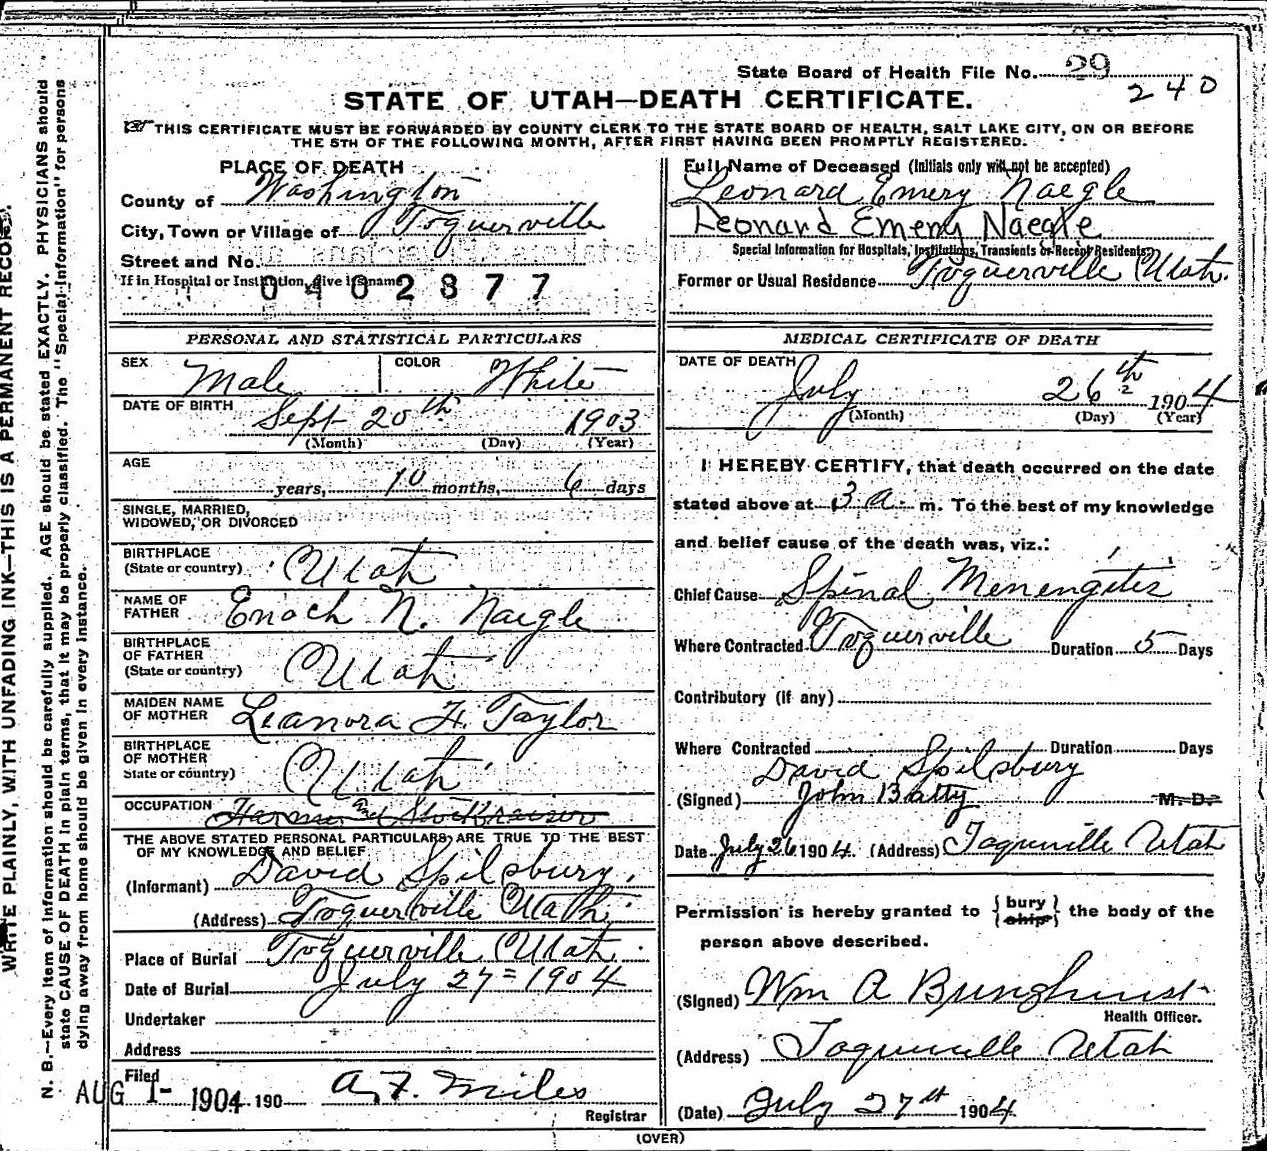 State Board of Health File No. 29
240
STATE OF UTAH—DEATH CERTIFICATE.
THIS CERTIFICATE MUST BE FORWARDED BY COUNTY CLERK TO THE STATE BOARD OF HEALTH, SALT LAKE CITY, ON OR BEFORE
THE 5TH OF THE FOLLOWING MONTH, AFTER FIRST HAVING BEEN PROMPTLY REGISTERED.
PLACE OF DEATH
County of Washington
City, Town or Village of Toquerville
Street and No.
If in Hospital or Institution, give its name
0402877
Full Name of Deceased (Initials only will not be accepted)
Leonard Emery Naegle
Leonard Emery Naegle
Special Information for Hospitals, Institutions, Transients or Recent Residents.
Former or Usual Residence Toquerville Utah.
PERSONAL AND STATISTICAL PARTICULARS
SEX Male COLOR White
DATE OF BIRTH Sept 20th 1903
(Month) (Day) (Year)
AGE
years, 10 months, 6 days
SINGLE, MARRIED,
WIDOWED, OR DIVORCED
BIRTHPLACE
(State or country) Utah
NAME OF
FATHER Enoch N. Naegle
BIRTHPLACE
OF FATHER
(State or country) Utah
MAIDEN NAME
OF MOTHER Leanora H. Taylor
BIRTHPLACE
OF MOTHER
State or country) Utah
OCCUPATION Farmer and Stockraiser
THE ABOVE STATED PERSONAL PARTICULARS ARE TRUE TO THE BEST
OF MY KNOWLEDGE AND BELIEF
(Informant) David Spilsbury.
(Address) Toquerville Utah
Place of Burial Toquerville Utah.
Date of Burial July 27=1904
Undertaker
Address
Filed
AUG 1- 1904 190 A. F. Miles
Registrar
MEDICAL CERTIFICATE OF DEATH
DATE OF DEATH July 26th 1904
(Month) (Day) (Year)
I HEREBY CERTIFY, that death occurred on the date
stated above at 3 a. m. To the best of my knowledge
and belief cause of the death was, viz.:
Chief Cause Spinal Menengitis
Where Contracted Toquerville Duration 5 Days
Contributory (if any)
Where Contracted Duration Days
David Spilsbury
(Signed) John Batty M. D.
Date July 26 1904. (Address) Toquerville Utah
Permission is hereby granted to { bury / ship } the body of the
person above described.
(Signed) Wm A Bringhurst
Health Officer.
(Address) Toquerville Utah
(Date) July 27th 1904
(OVER)
WRITE PLAINLY, WITH UNFADING INK—THIS IS A PERMANENT RECORD.
N. B.—Every item of information should be carefully supplied. AGE should be stated EXACTLY. PHYSICIANS should
state CAUSE OF DEATH in plain terms, that it may be properly classified. The "Special Information" for persons
dying away from home should be given in every instance.